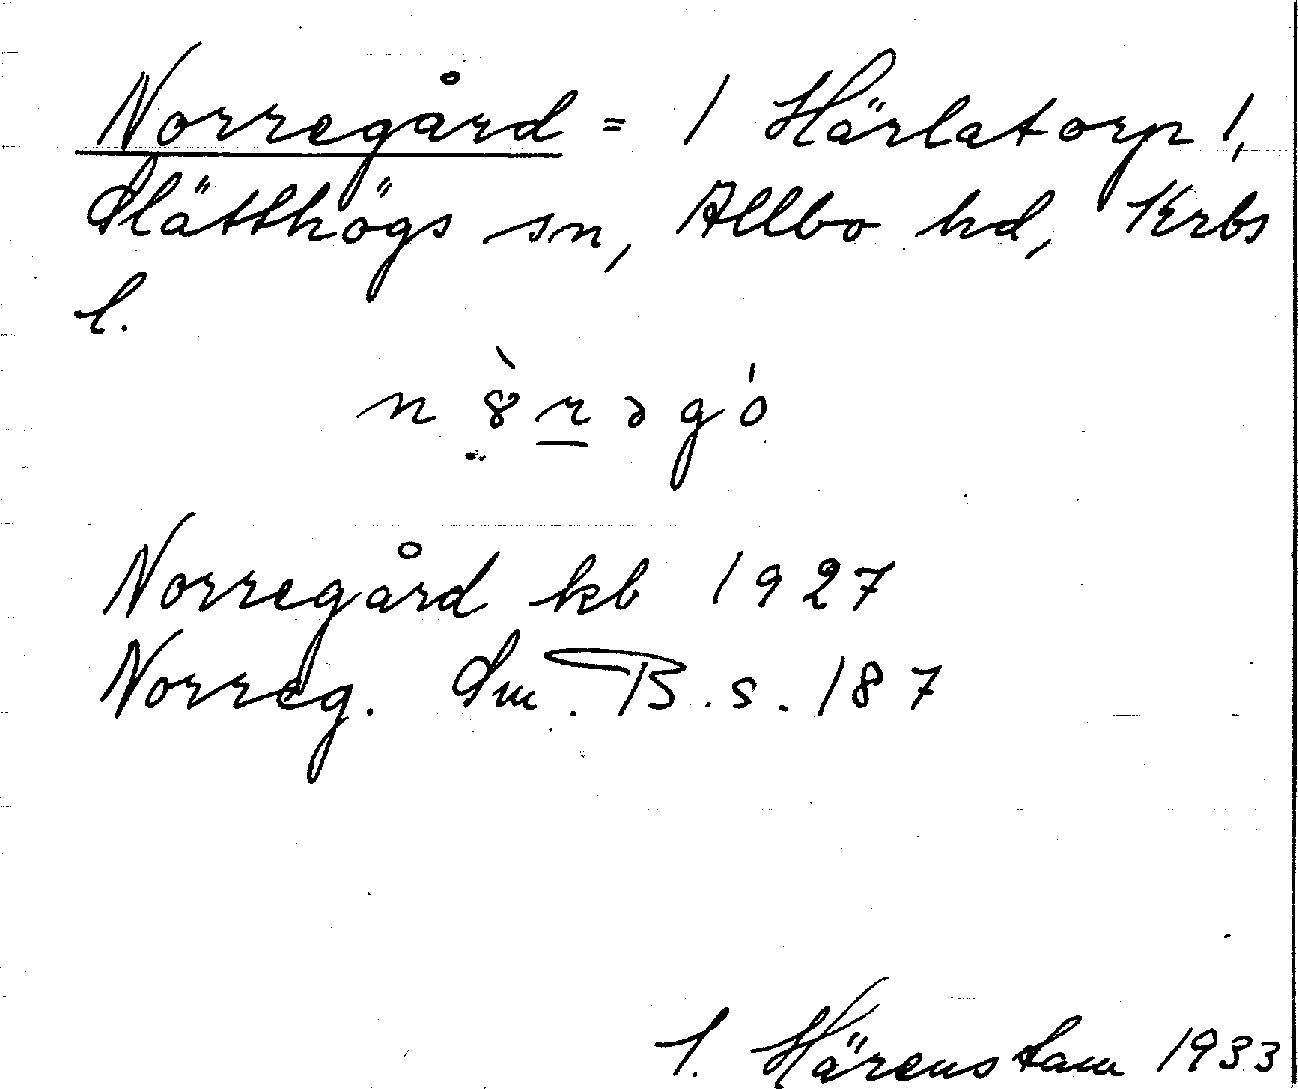 Norregård = 1 Härlatorp 1,
Slätthögs sn, Allbo hd, Krbs
l.
n 8̀ r ə g ó
Norregård kb 1927
Norreg. Sm. B. s. 187
I. Härenstam 1933